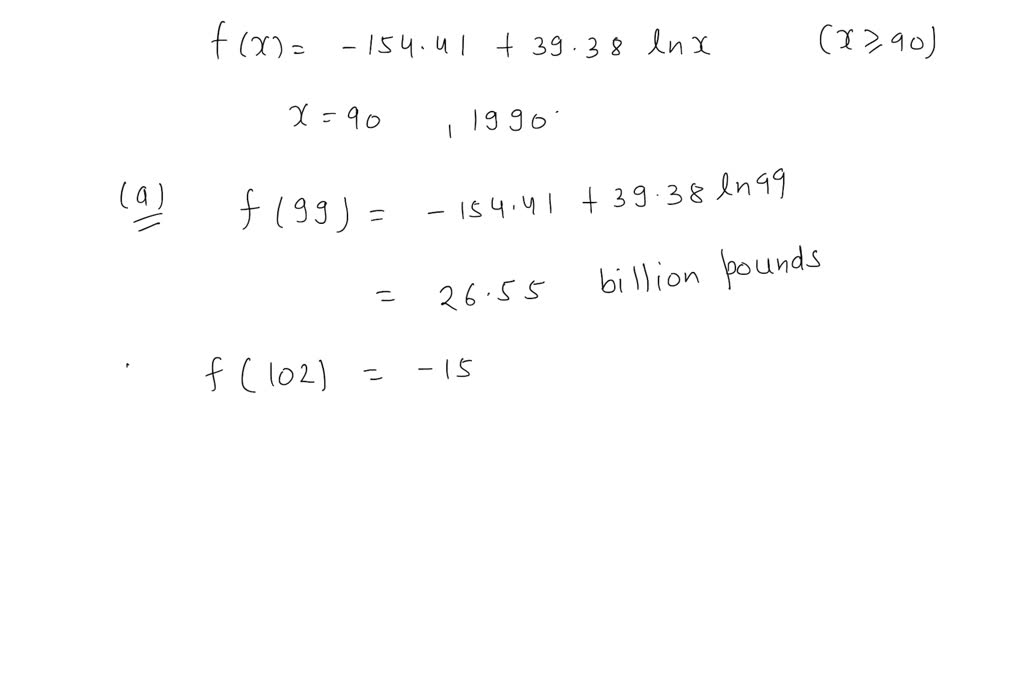 f(x) = -154.41 + 39.38 ln x (x ≥ 90)
x = 90 , 1990
(a) f(99) = -154.41 + 39.38 ln 99
= 26.55 billion pounds
f(102) = -15